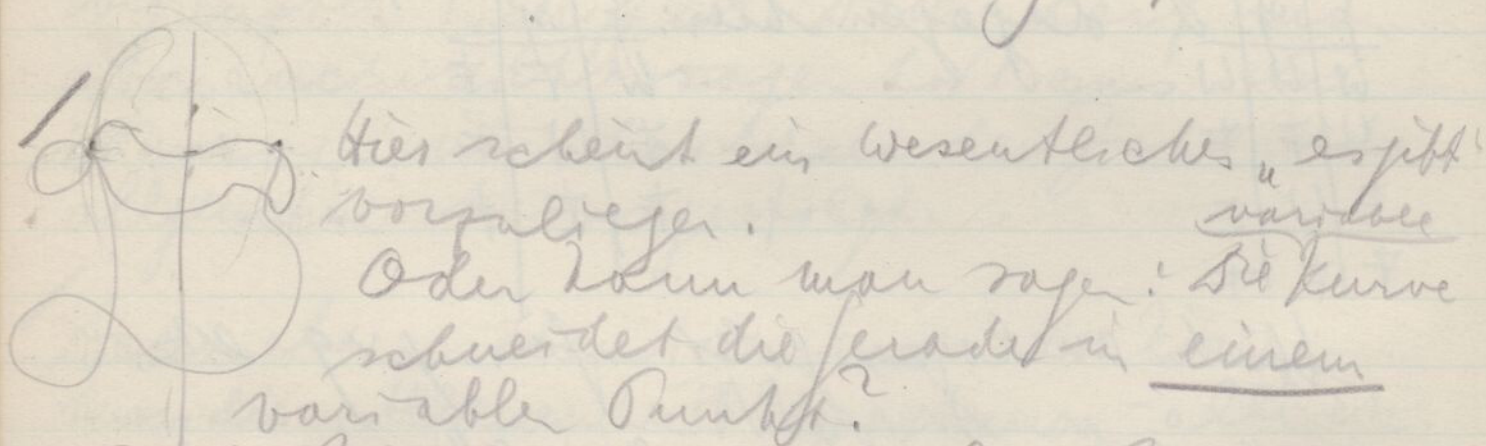 Hier scheint ein wesentliches „es gibt"
vorzuliegen.
variable
Oder kann man sagen: Die Kurve
schneidet die Gerade in einem
variablen Punkt?